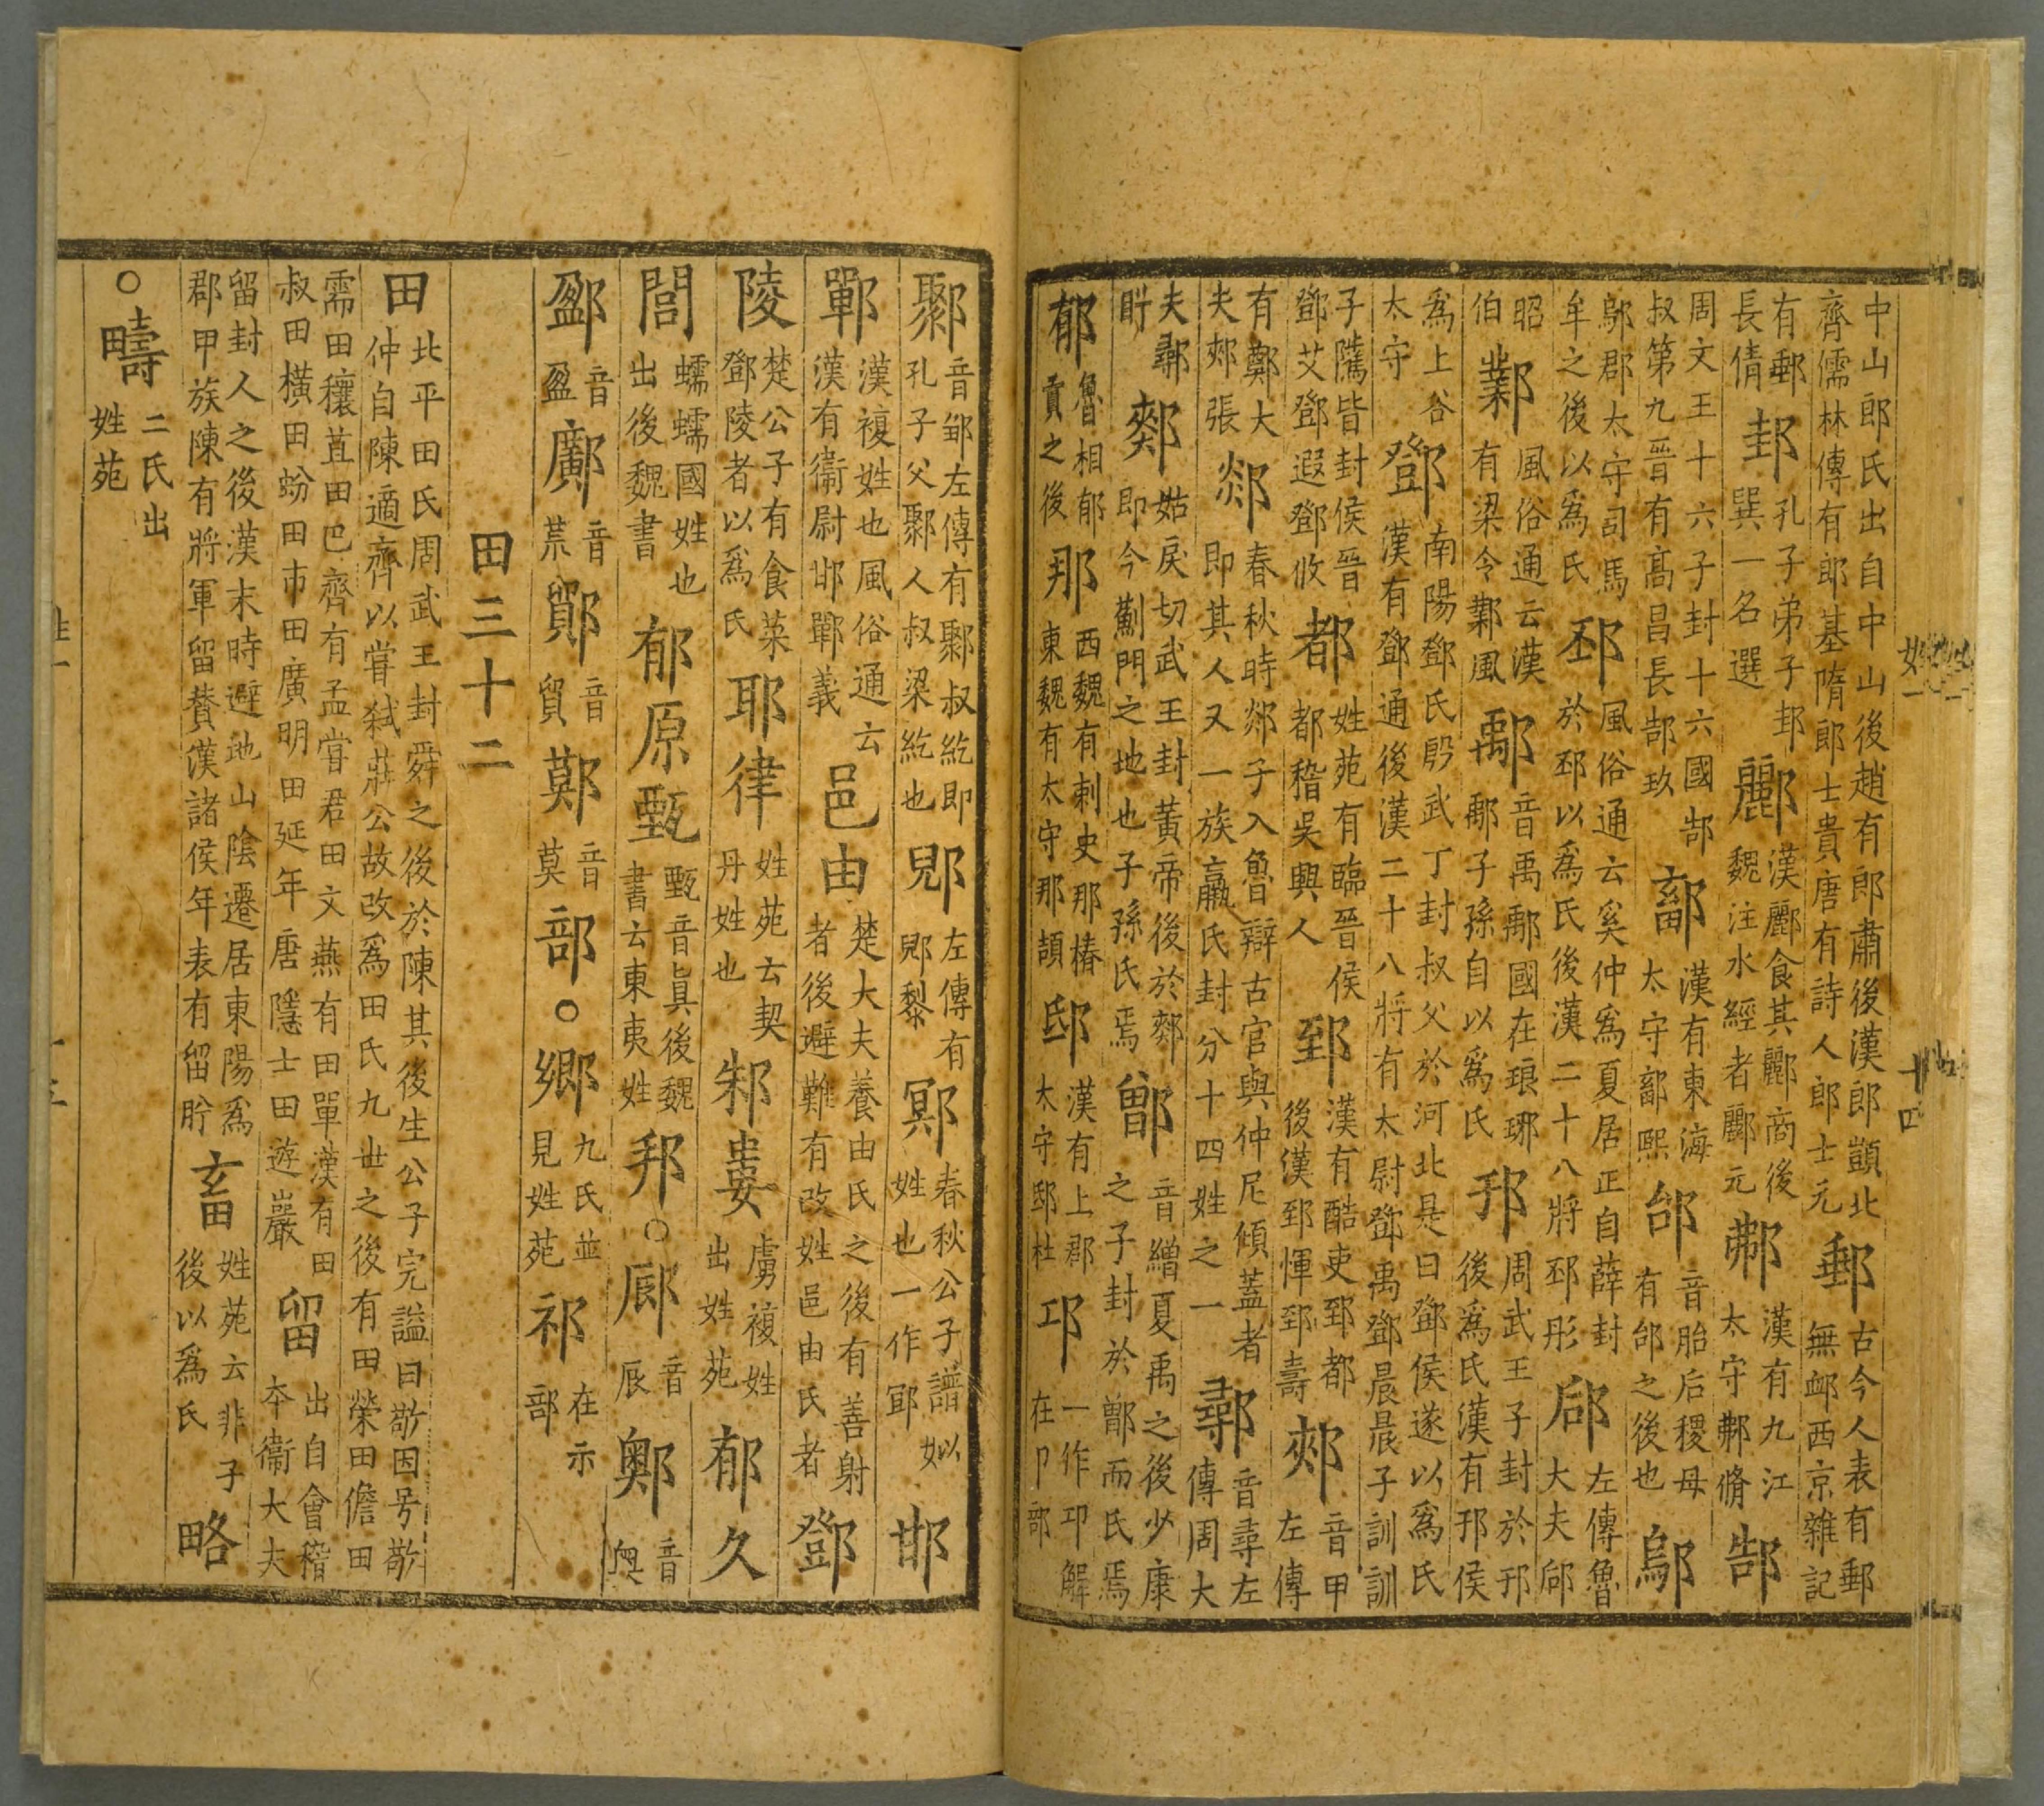 中山郎氏出自中山後趙有郎肅後漢郎顗北
齊儒林傳有郎基隋郎士貴唐有詩人郎士元郵古今人表有郵無䘏西京雜記
有郵長倩邽孔子弟子邽巽一名選酈漢酈食其酈商後魏注水經者酈元漢有九江太守脩郜
周文王十六子封十六國郜叔第九晉有高昌長郜玖鄐漢有東海太守鄐熙邰音胎后稷母有邰之後也鄔
鄔郡太守司馬牟之後以為氏邳風俗通云奚仲為夏居正自薛封於邳以為氏後漢二十八將邳彤郈左傳魯大夫郈
昭伯鄴風俗通云漢有梁令鄴風鄅音禹鄅國在琅琊鄅子孫自以為氏邘周武王子封於邘後為氏漢有邘侯
為上谷太守鄧南陽鄧氏殷武丁封叔父於河北是曰鄧侯遂以為氏漢有鄧通後漢二十八將有太尉鄧禹鄧晨晨子訓訓
子隲皆封侯晉鄧艾鄧遐鄧攸都姓苑有臨晉侯都稽吳興人郅漢有酷吏郅都後漢郅惲郅壽郟音甲左傳
有鄭大夫郟張郯春秋時郯子入魯辯古官與仲尼傾蓋者即其人又一族嬴氏封分十四姓之一鄩音尋左傳周大
夫鄩肸姑戾切武王封黃帝後於即今薊門之地也子孫氏焉鄫音繒夏禹之後少康之子封於鄫而氏焉
郁魯相郁貢之後那西魏有刺史那椿東魏有太守那頡邸漢有上郡太守邸杜邛一作卭解在卩部
姓一
十四
鄹音鄒左傳有鄹叔紇即孔子父鄹人叔梁紇也郳左傳有郳黎鄍春秋公子譜姒姓也一作邯
鄲漢複姓也風俗通云漢有衛尉邯鄲義邑由楚大夫養由氏之後有善射者後避難有改姓邑由氏者鄧
陵楚公子有食菜鄧陵者以為氏耶律姓苑云契丹姓也邾婁虜複姓出姓苑郁久
閭蠕蠕國姓也出後魏書郁原甄甄音真後魏書云東夷姓邦○音辰音奧
音盈音荒鄮音貿鄚音莫部○鄉九氏並見姓苑祁在示部
田三十二
田北平田氏周武王封舜之後於陳其後生公子完謚曰敬因号敬仲自陳適齊以嘗弒莊公故改為田氏九世之後有田榮田儋田
需田穰苴田巴齊有孟嘗君田文燕有田單漢有田叔田橫田蚡田市田廣明田延年唐隱士田遊巖留出自會稽本衛大夫
留封人之後漢末時避地山陰遷居東陽為郡甲族陳有將軍留贊漢諸侯年表有留肹畜姓苑云非子後以為氏略
○疇二氏出姓苑